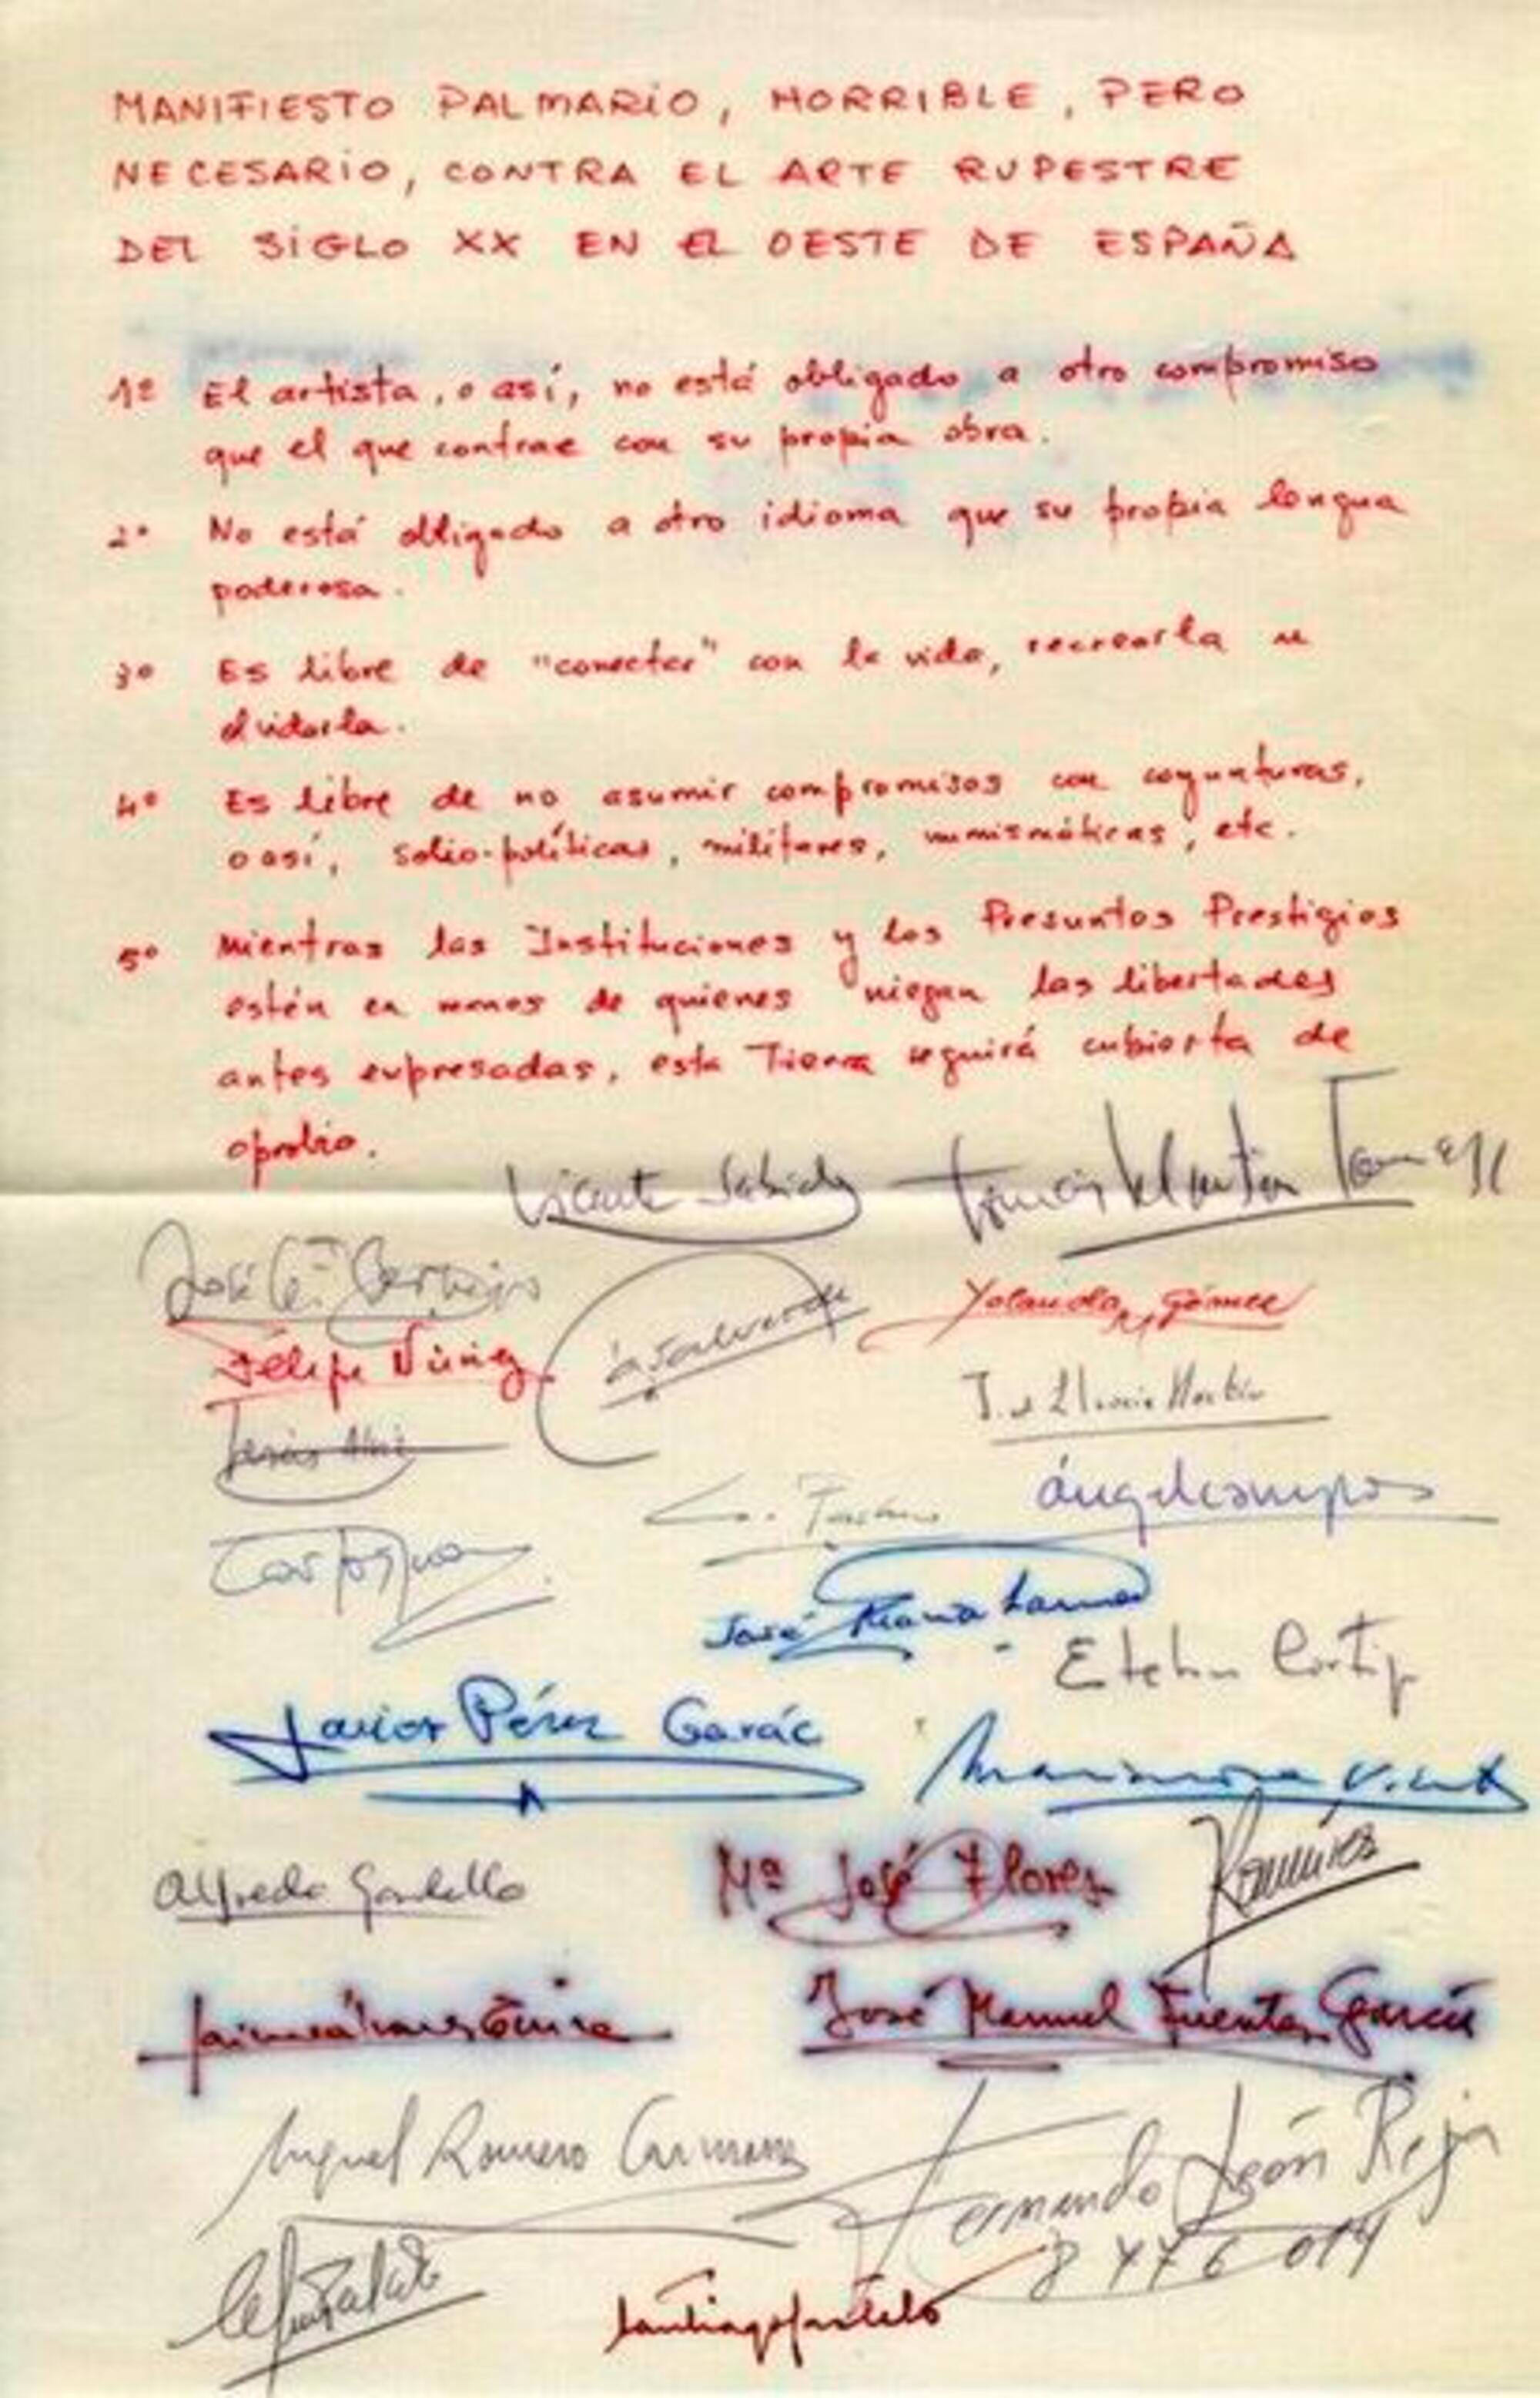 MANIFIESTO PALMARIO, HORRIBLE, PERO
NECESARIO, CONTRA EL ARTE RUPESTRE
DEL SIGLO XX EN EL OESTE DE ESPAÑA
1º El artista, o así, no está obligado a otro compromiso
que el que contrae con su propia obra.
2º No está obligado a otro idioma que su propia lengua
poderosa.
3º Es libre de "conectar" con la vida, recrearla u
olvidarla.
4º Es libre de no asumir compromisos con coyunturas,
o así, socio-políticas, militares, numismáticas, etc.
5º Mientras las Instituciones y los Presuntos Prestigios
estén en manos de quienes niegan las libertades
antes expresadas, esta Tierra seguirá cubierta de
oprobio.
Vicente Sabido Tomás Martín Tamayo
José Mª Bermejo
Casalverde
Yolanda Gómez
Felipe Núñez
ángel campos
José María
Javier Pérez
Alfredo
Mª José Flores
Ramírez
José Manuel Fuentes García
Miguel Romero Carmona
Fernando León Rejas
8 776 014
Santiago Castelo